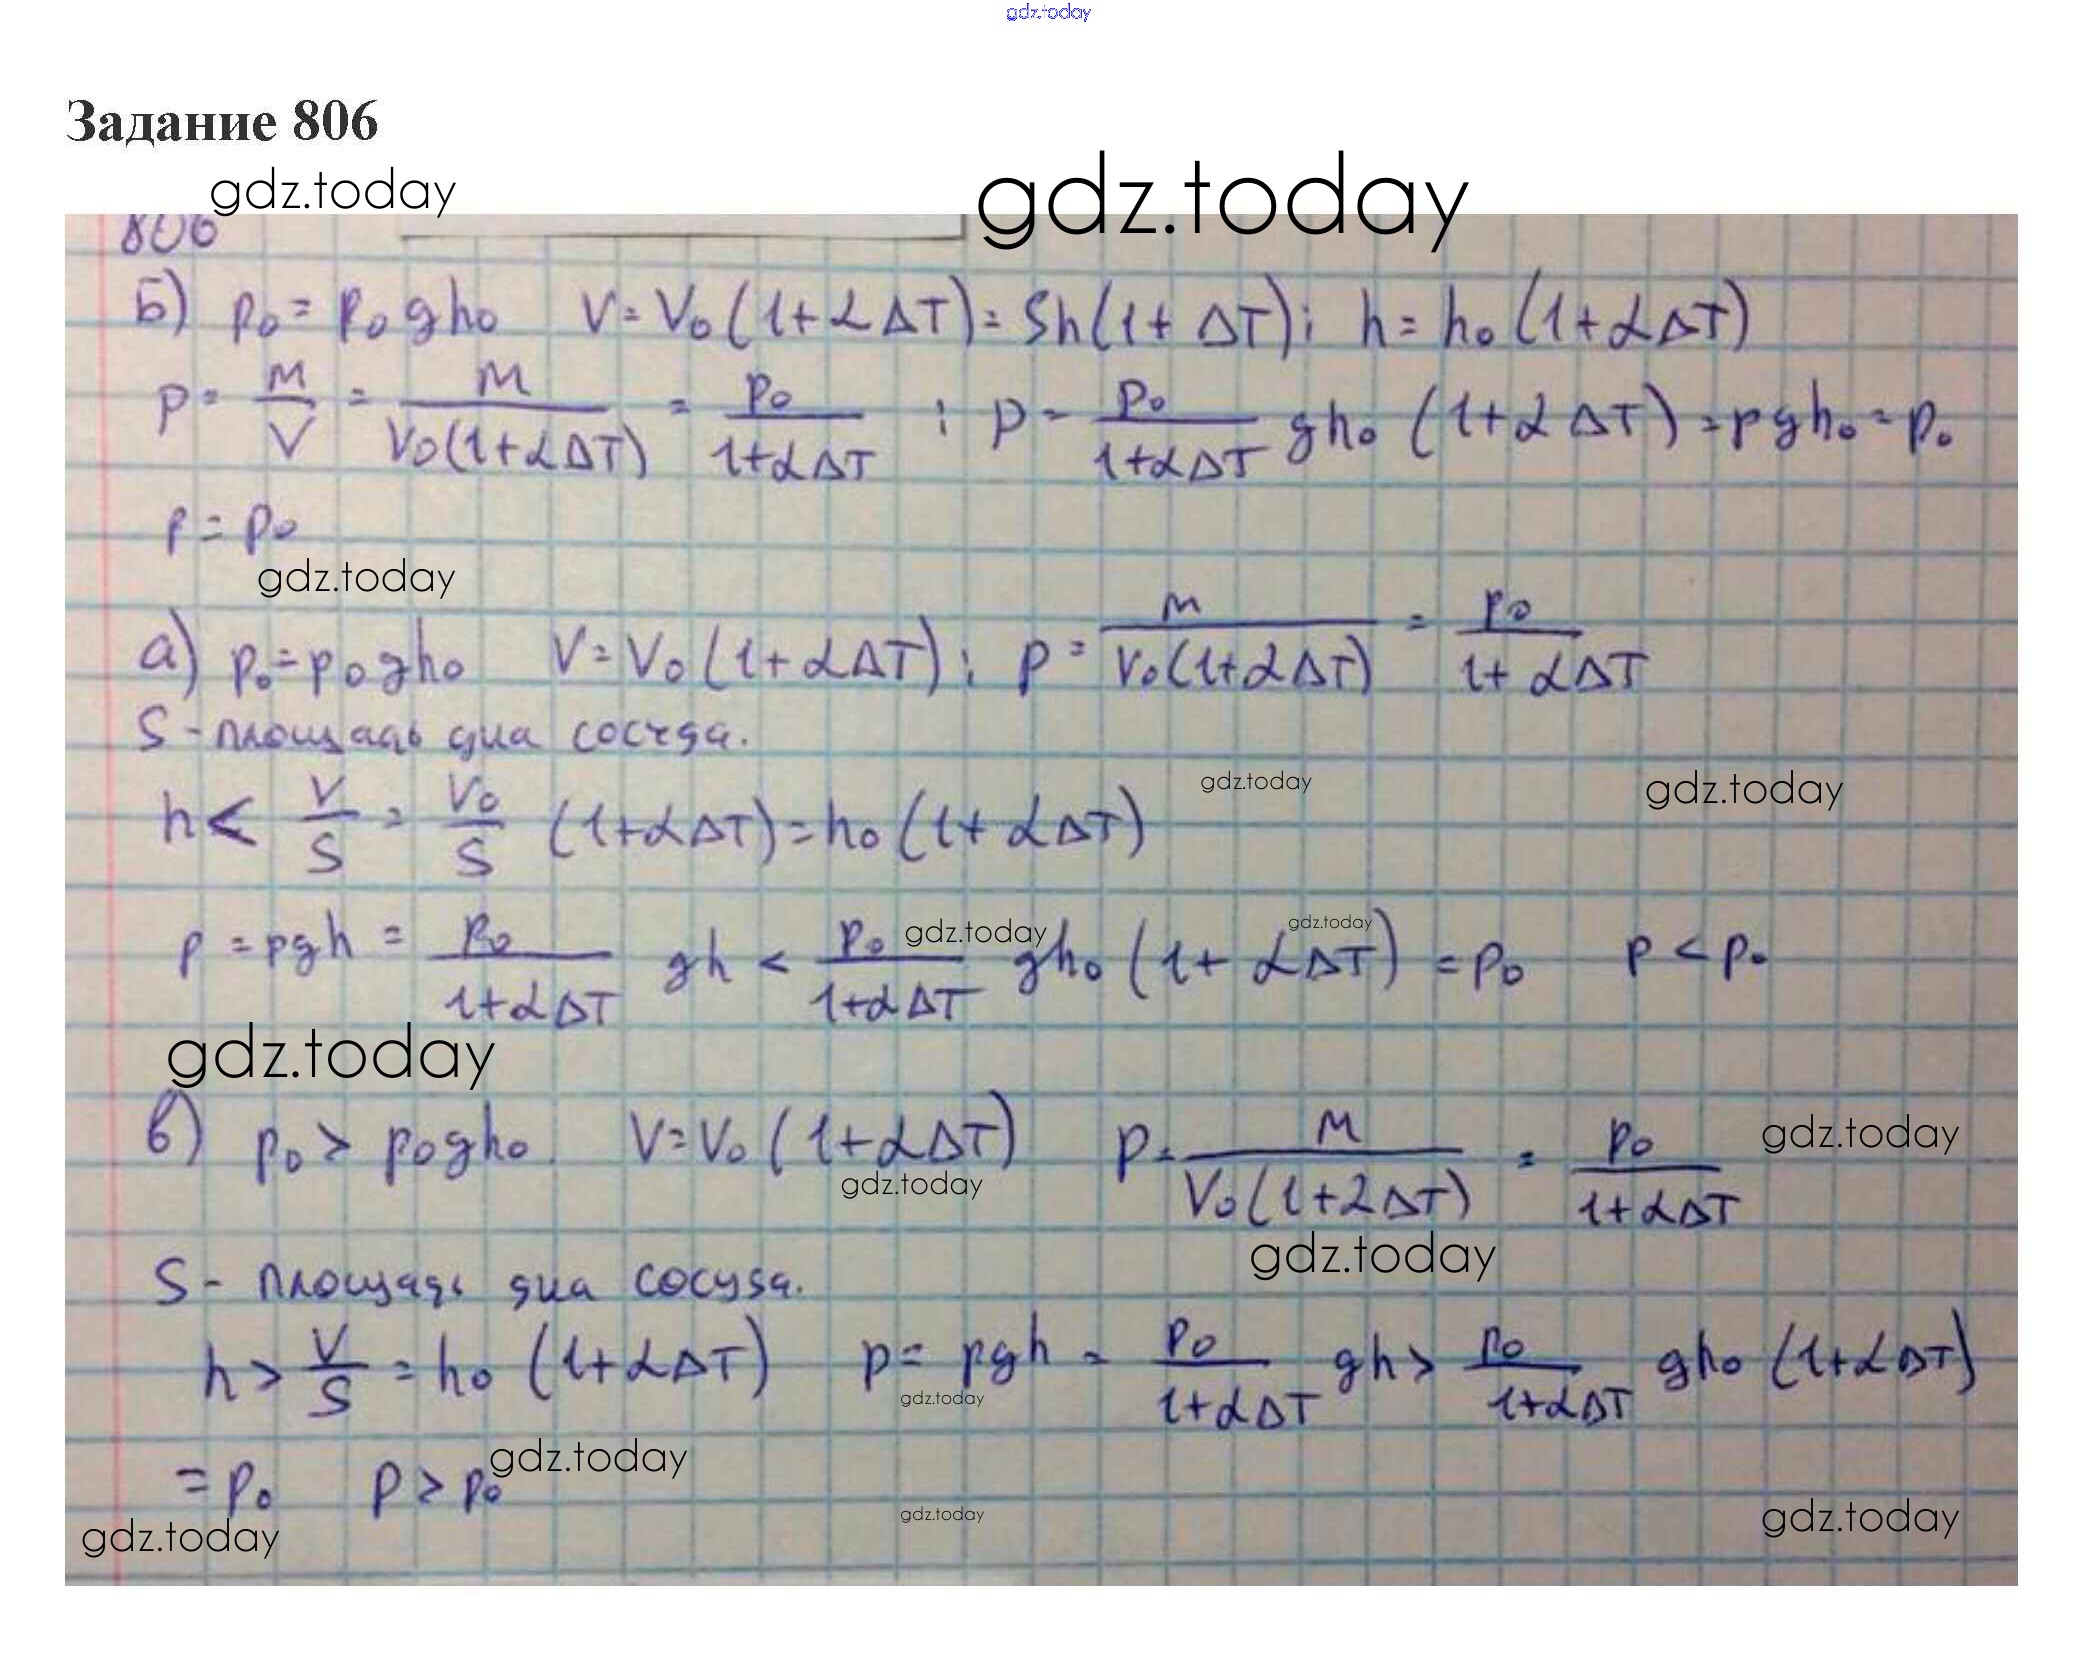 gdz.today
Задание 806
gdz.today gdz.today
806
Б) p₀ = p₀gh₀ V = V₀(1+αΔT) = Sh(1+ΔT); h = h₀(1+αΔT)
p = m/V = m/(V₀(1+αΔT)) = p₀/(1+αΔT) ; p = p₀/(1+αΔT) gh₀(1+αΔT) = pgh₀ = p₀
p = p₀
gdz.today
а) p₀ = p₀gh₀ V = V₀(1+αΔT); p = m/(V₀(1+αΔT)) = p₀/(1+αΔT)
S - площадь дна сосуда.
gdz.today gdz.today
h < V/S = V₀/S (1+αΔT) = h₀(1+αΔT)
gdz.today gdz.today
p = pgh = p₀/(1+αΔT) gh < p₀/(1+αΔT) gh₀(1+αΔT) = p₀ p < p₀
gdz.today
в) p₀ > p₀gh₀. V = V₀(1+αΔT) p = m/(V₀(1+2ΔT)) = p₀/(1+αΔT)
gdz.today gdz.today
gdz.today
S - площадь дна сосуда.
h > V/S = h₀(1+αΔT) p = pgh = p₀/(1+αΔT) gh > p₀/(1+αΔT) gh₀(1+αΔT)
gdz.today
= p₀ p > p₀
gdz.today
gdz.today gdz.today gdz.today